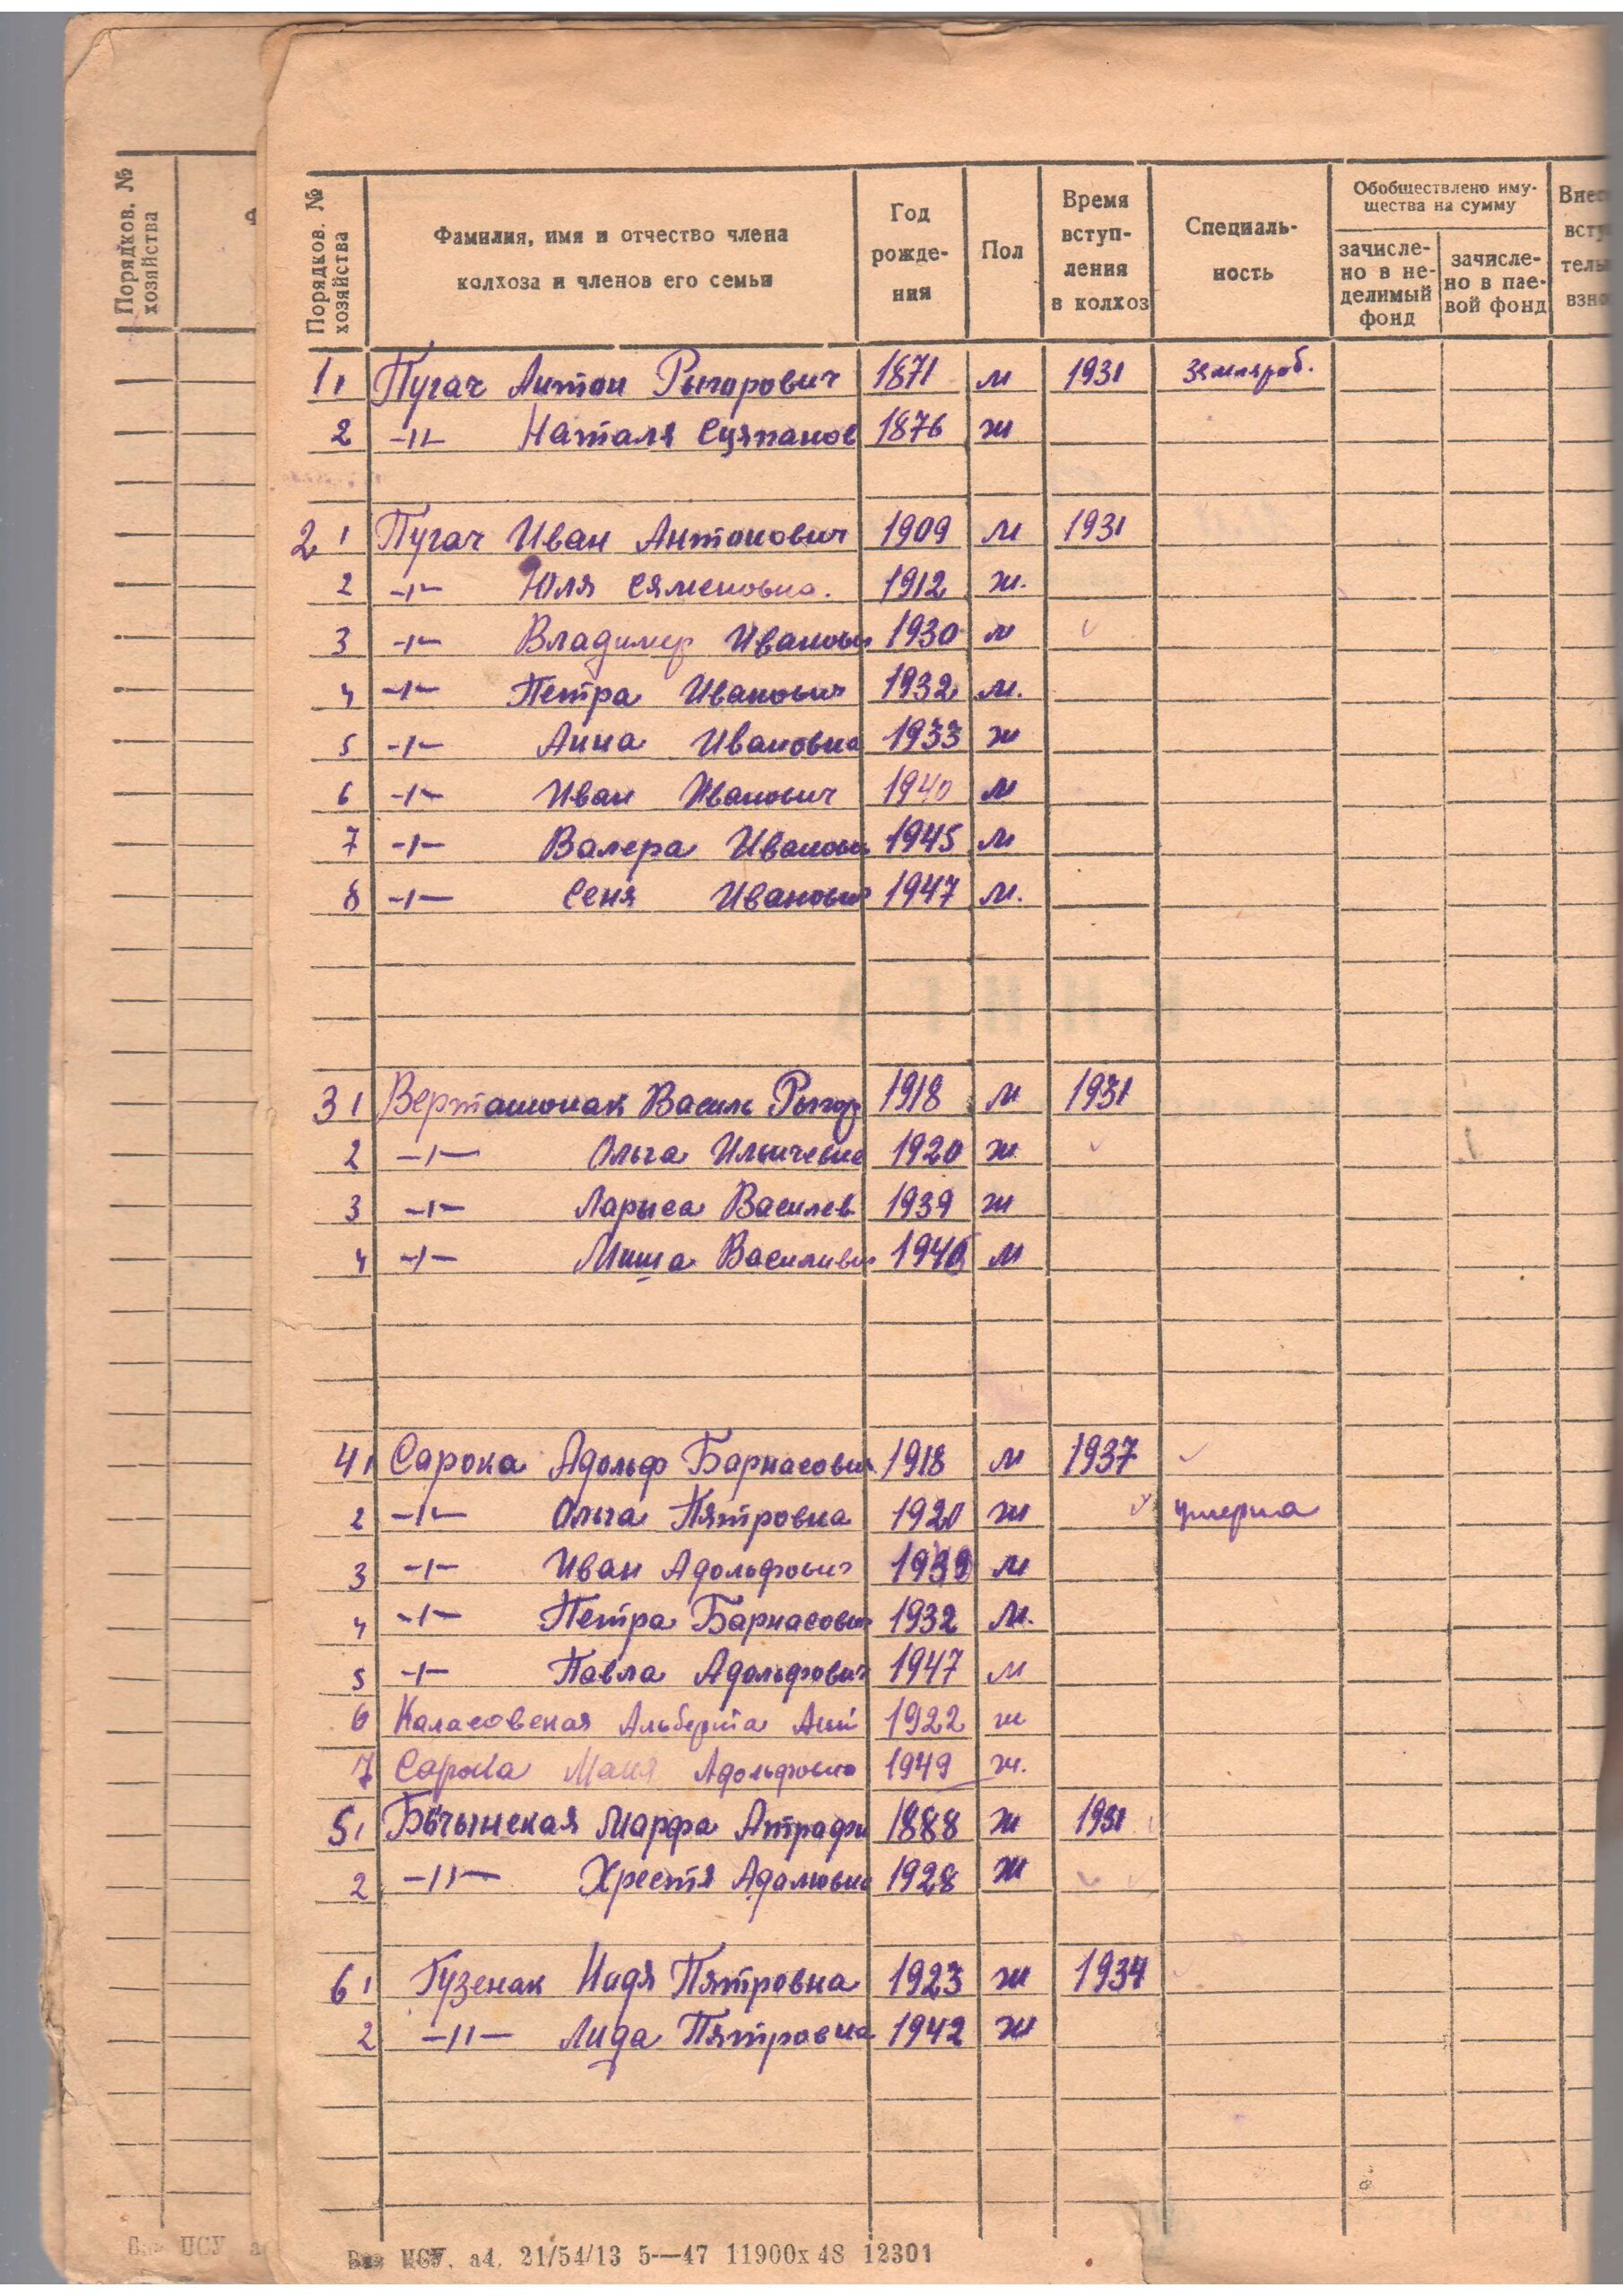 Порядков. № хозяйства
Порядков. № хозяйства
Фамилия, имя и отчество члена колхоза и членов его семьи
Год рождения
Пол
Время вступления в колхоз
Специальность
Обобществлено имущества на сумму
зачислено в неделимый фонд
зачислено в паевой фонд
1 1 Пугач Антон Рыгорович 1871 м 1931 земляроб.
2 -"- Наталя Сцяпанов 1876 ж
2 1 Пугач Иван Антонович 1909 м 1931
2 -"- Юля Сяменовна. 1912 ж.
3 -"- Владимер Иванович 1930 м
4 -"- Петра Иванович 1932 м.
5 -"- Анна Ивановна 1933 ж
6 -"- Иван Иванович 1940 м
7 -"- Валера Иванович 1945 м
8 -"- Сеня Иванович 1947 м.
3 1 Верташонак Василь Рыгор 1918 м 1931
2 -"- Ольга Ильичевна 1920 ж
3 -"- Ларыса Василев 1939 ж
4 -"- Миша Василивич м
4 1 Сарока Адольф Барнасович 1918 м 1937
2 -"- Ольга Пятровна 1920 ж умерла
3 -"- Иван Адольфович 1939 м
4 -"- Петра Барнасович 1932 м.
5 -"- Павла Адольфович 1947 м
6 Каласовская Альберта 1922 ж
7 Сарока Маня Адольфовна 1949 ж.
5 1 Марфа 1888 ж 1931
2 -"- Хрестя Адамовна 1928 ж
6 1 Гузенак Надя Пятровна 1923 ж 1934
2 -"- Лида Пятровна 1942 ж
ЦСУ. а4. 21/54/13 5—47 11900х48 12301